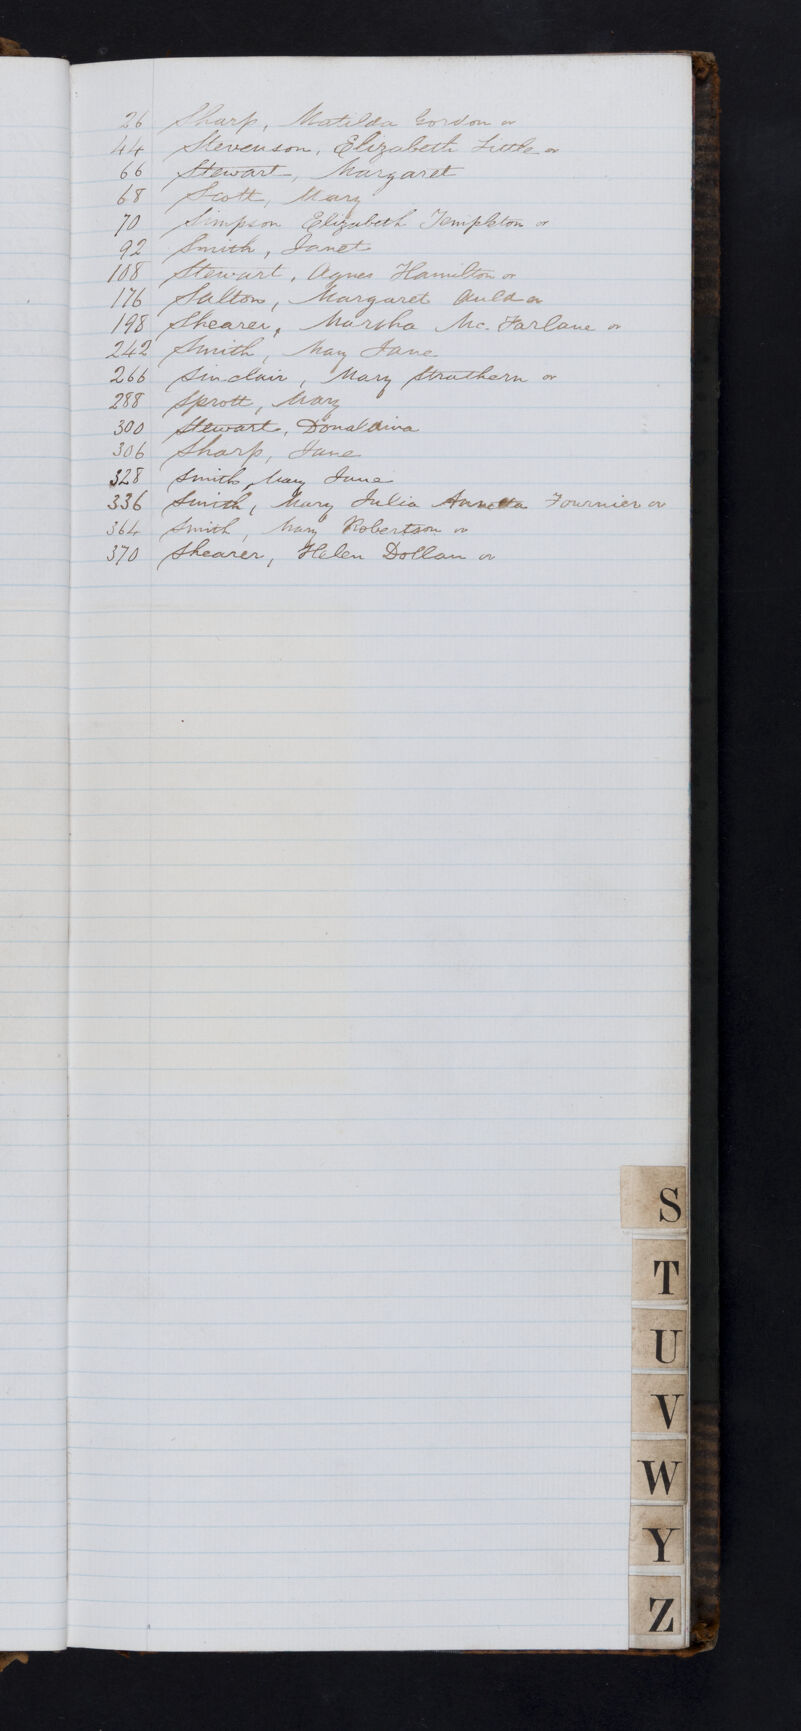 26 Sharp, Matilda Gordon or
44 Stevenson, Elizabeth Little or
66 Stewart, Margaret
68 Scott, Mary
70 Simpson Elizabeth Templeton or
92 Smith, Janet
108 Stewart, Agnes Hamilton or
176 Salton, Margaret Auld or
198 Shearer, Martha Mc. Farlane or
242 Smith, Mary Jane
266 Sinclair, Mary Strathern or
288 Sprott, Mary
300 Stewart, Donaldina
306 Sharp, Jane
328 Smith, Mary Jane
336 Smith, Mary Julia Annetta Fournier or
364 Smith, Mary Robertson or
370 Shearer, Helen Dollan or
S
T
U
V
W
Y
Z